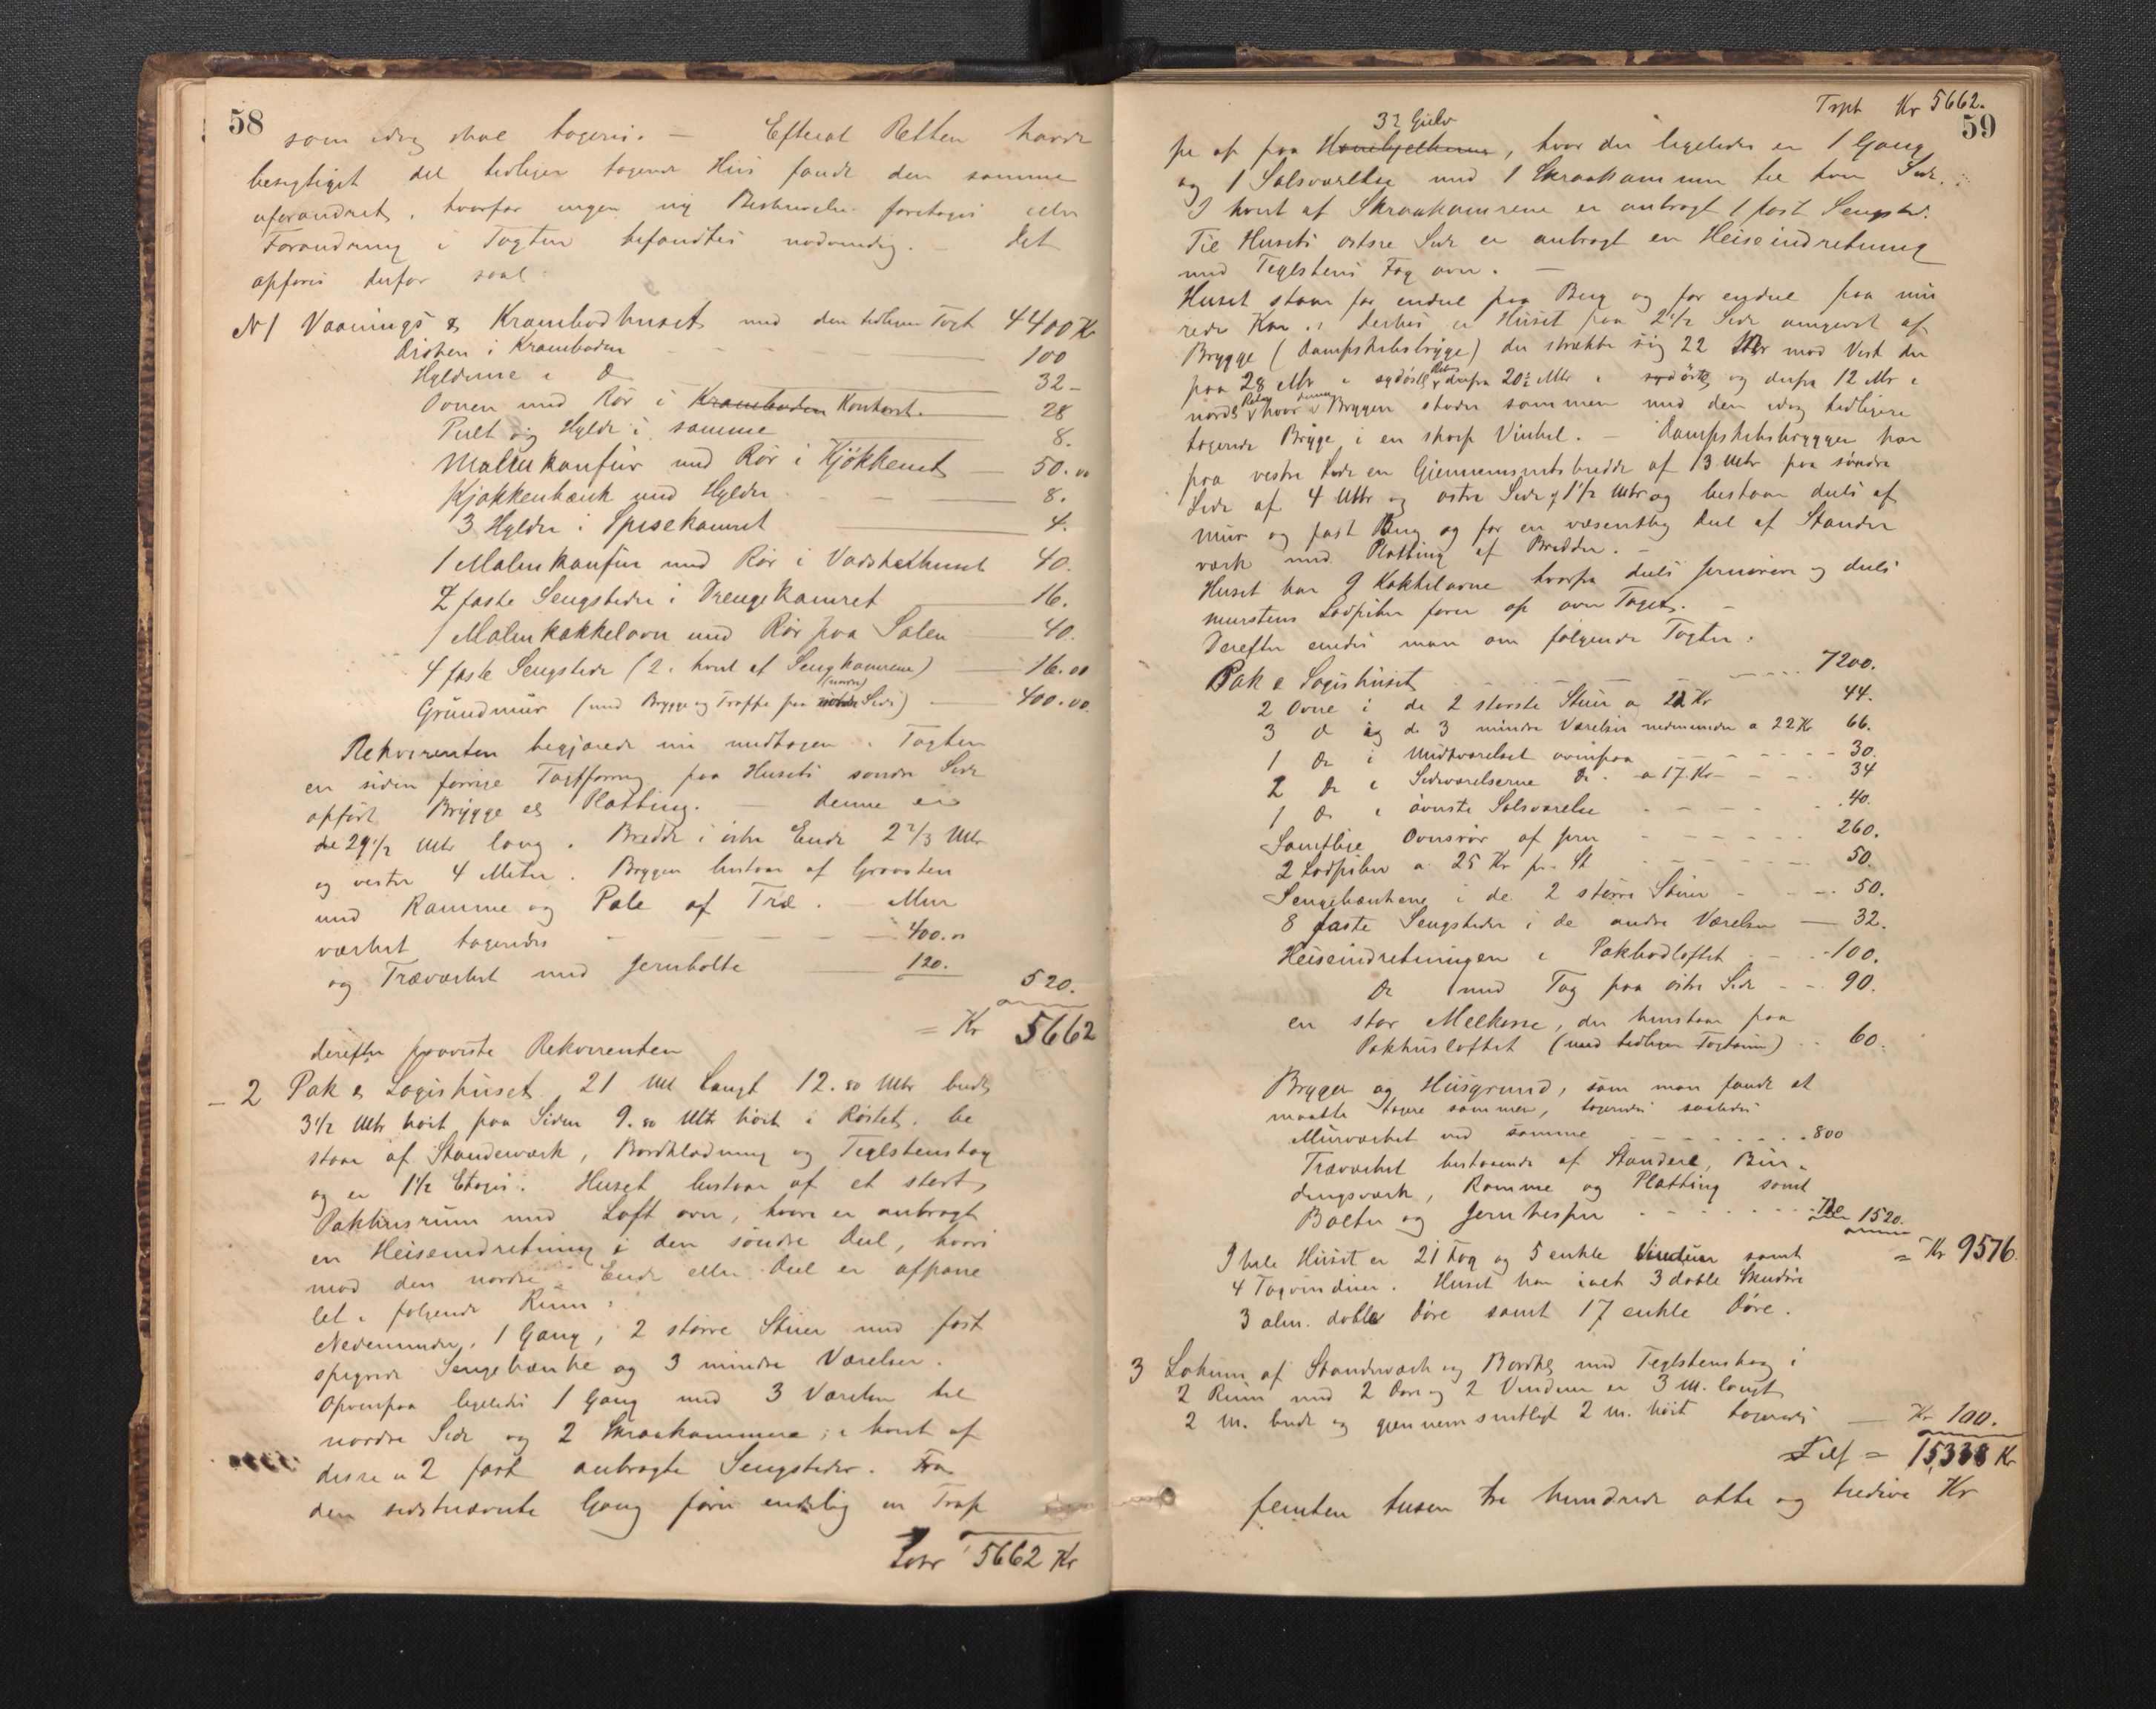 58
som idag skal taxeres. — Efterat Retten havde
besigtiget det tidligere taxerede Hus fandt den samme
uforandret, hvorfor ingen ny Beskrivelse foretoges eller
Forandring i Taxten befandtes nødvendig. — Det
opføres derfor saal:
N 1 Vaanings & Krambodhuset med den tidligere Taxt 4400 Kr
Disken i Kramboden 100
Hylderne i D 32 -
Ovnen med Rør i Kramboden Kontoret. 28
Pult og Hylde i samme 8.
Malmkomfur med Rør i Kjøkkenet — 50.00
Kjøkkenbænk med Hylder - - — 8.
3 Hylder i Spisekamret 4.
1 Malmkomfur med Rør i Vadskethuset 40.
2 faste Sengsteder i Drengekamret 16.
1 Malmkakkelovn med Rør paa Salen 40.
4 faste Sengsteder (2 i hvert af Sengkamrene) 16.00
Grundmur (med Brygge og Trappe paa nordre Side) 400.00
Rekvirenten begjærede nu medtagen i Taxten
en siden forrige Taxtforretng paa Husets søndre Side
opført Brygge el Platting. — Denne er
29 1/2 Mtr lang. Bredde i østre Ende 2 2/3 Mtr
og vestre 4 Meter. Bryggen bestaar af Graasten
med Ramme og Pæle af Træ. — Mur
værket taxeredes — 400.00
og Træværket med Jernbolte — 120.
520.
= Kr 5662
derefter paaviste Rekvirenten
- 2 Pak & Logishuset 21 Mtr langt 12.80 Mtr bredt
3 1/2 Mtr høit paa Siden 9.80 Mtr høit i Røstet, be
staar af Standerværk, Bordklædning og Teglstenstag
og er 1 1/2 Etages. Huset bestaar af et stort
Pakhusrum med Loft over, hvori er anbragt
en Heiseindretning i den søndre Deel, hvori
mod den nordre Ende eller Deel er afpane
let i følgende Rum:
Nedenunder, 1 Gang, 2 større Stuer med fast
spigrede Sengebænke og 3 mindre Værelser.
Ovenpaa ligeledes 1 Gang med 3 Værelser til
nordre Side og 2 Skraakammere; i hvert af
disse er 2 fast anbragte Sengsteder. Fra
den sidstnævnte Gang fører endelig en Trap
5662 Kr
Trspt Kr 5662.
59
32 Gulv
pe op paa , hvor der ligeledes er 1 Gang
og 1 Salsværelse med 1 Skraakammer til hver Side.
I hvert af Skraakamrene er anbragt 1 fast Sengsted.
Til Husets østre Side er anbragt en Heiseindretning
med Teglstens Tag over. —
Huset staar for endel paa Berg og for endel paa mu
rede Kar; derhos er Huset paa 2 1/2 Side omgivet af
Brygge (Dampskibsbrygge) der strækker sig 22 Mtr mod Vest der
paa 28 Mtr i sydøstl Retn derfra 20 1/2 Mtr i sydøstl, og derfra 12 Mtr i
nordl Retng hvor denne Bryggen støder sammen med den idag tidligere
taxerede Brygge i en skarp Vinkel. — Dampskibsbryggen har
paa vestre Side en Gjennemsnitsbredde af 13 Mtr paa søndre
Side af 4 Mtr og østre Side af 1 1/2 Mtr og bestaar dels af
mur og fast Berg og for en væsentlig Deel af Stander
værk med Platting af Bredder. —
Huset har 9 Kakkelovne hvorfra dels Jernrør og dels
murstens Ladpiber fører op over Taget. —
Derefter enedes man om følgende Taxter:
Pak & Logishuset 7200.
2 Ovne i de 2 største Stuer a 22 Kr 44.
3 D i de 3 mindre Værelser nedenunder a 22 Kr 66.
1 Do i Midtværelset ovenpaa 30.
2 Do i Sideværelserne Do - a 17 Kr - - 34
1 Do i øverste Salsværelse 40.
Samtlige Ovnsrør af Jern 260.
2 Ladpiber a 25 Kr pr. St 50.
Sengebænkene i de 2 større Stuer 50.
8 faste Sengsteder i de andre Værelser — 32.
Heiseindretningen i Pakbodloftet - - 100.
Do med Tag paa østre Side - - 90.
en stor Melkasse, der henstaar paa
Pakhusloftet (med tidligere ) - - 60.
Brygger og Husgrund, som man fandt at
maatte taxere sammen, taxeredes saaledes
Murværket ved samme 800
Træværket bestaaende af Standere, Bin-
dingsværk, Ramme og Platting samt
Bolter og Jernhesper 720 1520.
I hele Huset er 21 Fag og 5 enkle Vinduer samt = Kr 9576.
4 Tagvinduer. Huset har ialt 3 doble
3 alm. doble Døre samt 17 enkle Døre.
3 Lokum af Standerværk og Bordkl med Teglstenstag i
2 Rum med 2 Døre og 2 Vinduer er 3 M. langt
2 M. bredt og gjennemsnitligt 2 M. høit taxeredes — Kr 100.
Tils = 15,338 Kr
femten tusen tre hundrede otte og tredive Kr